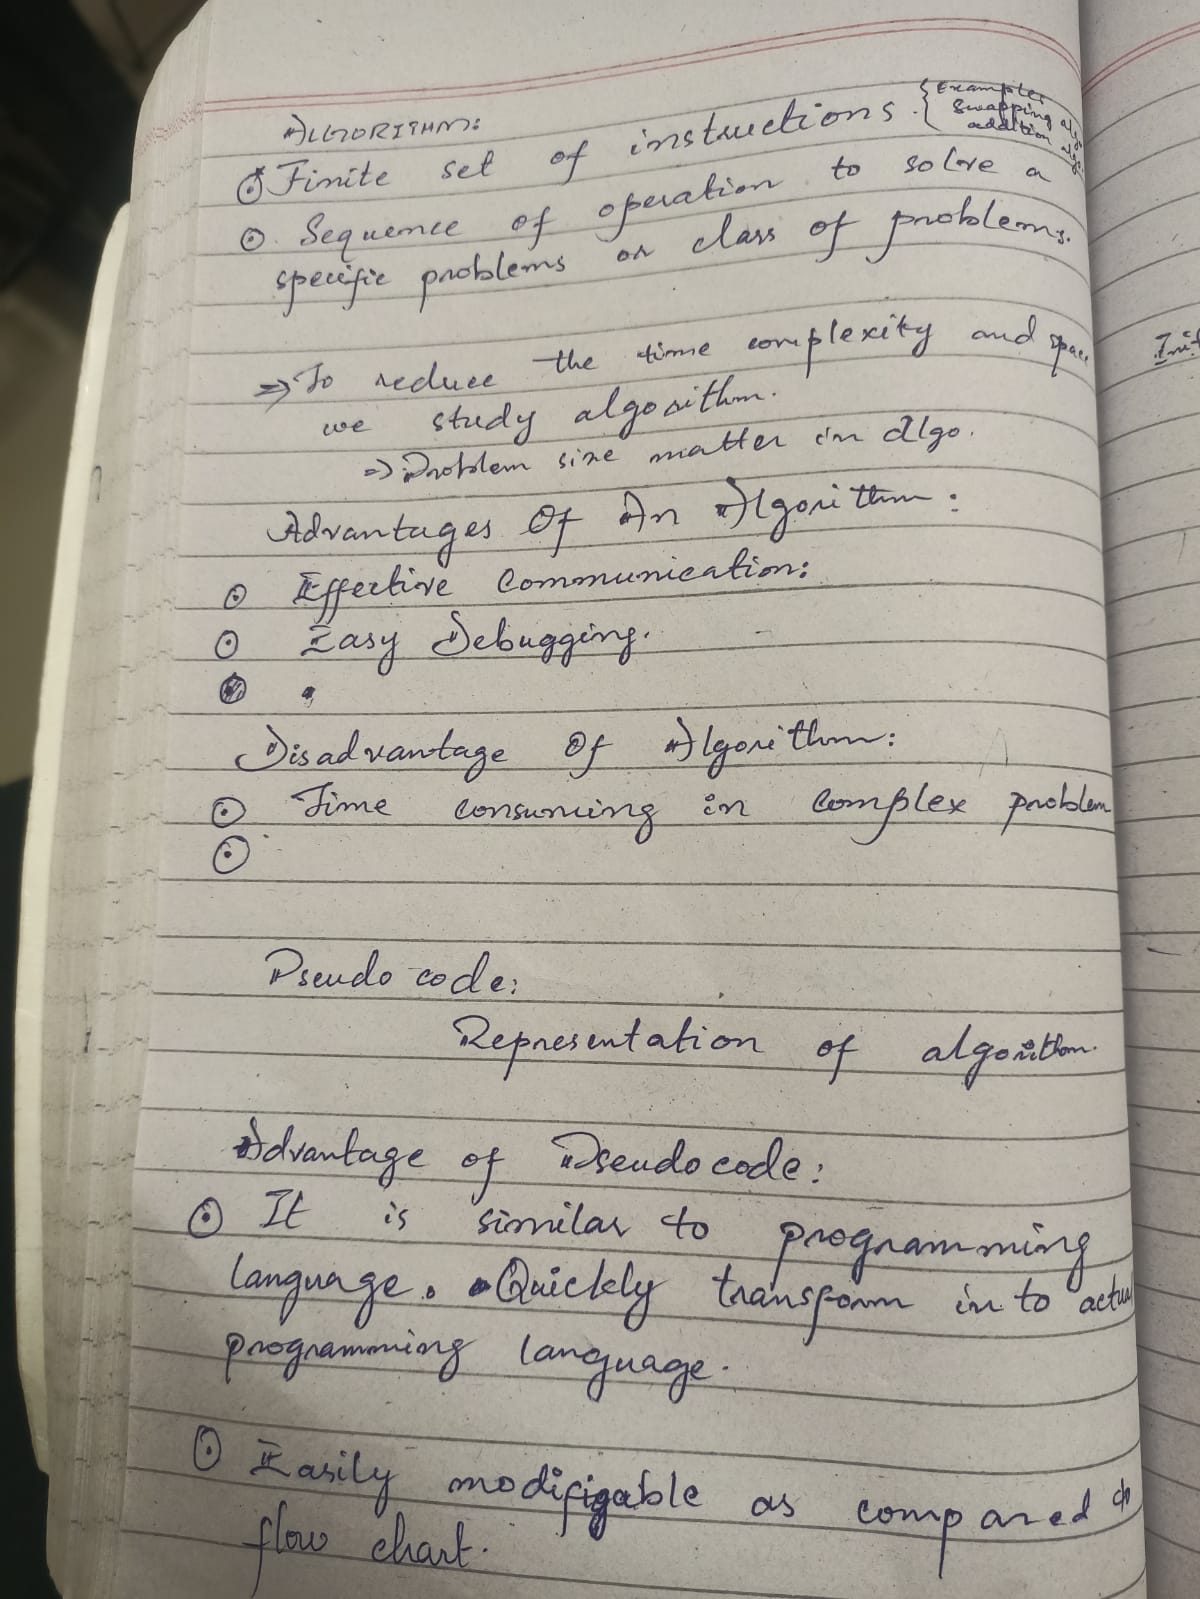 ALGORITHM:
Examples
Swapping algo
addition algo
Finite set of instructions.
Sequence of operation to solve a
specific problems or class of problems.
⇒ To reduce the time complexity and space
we study algorithm.
⇒ Problem size matter in Algo.
Advantages Of An Algorithm:
Effective Communication:
Easy Debugging.
Disadvantage Of Algorithm:
Time consuming in complex problem
Pseudo code:
Representation of algorithm.
Advantage of Pseudo code:
It is similar to programming
language. Quickly transform in to actual
programming language.
Easily modifigable as compared to
flow chart.